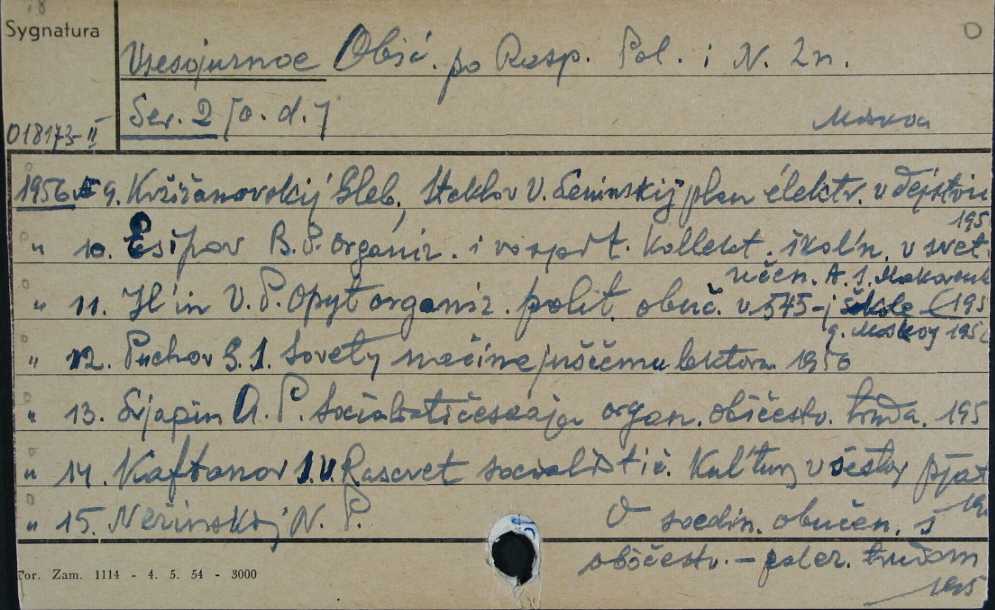 Sygnatura
Vsesojuznoe Obšč. po Rasp. Pol. i N. Zn.
Ser. 2 [o. d.]
Moskva
018173-II
1956 9. Kržižanovskij Gleb, Steklov V. Leninskij plan élektr. v dejstvii
195
" 10. Esipov B. P. Organiz. i vospit. kollekt. škol'n. v svet.
učen. A. S. Makarenk
" 11. Il'in V. P. Opyt organiz. polit. obuč. v 545-j škole 195
g. Moskvy 195
" 12. Puchov S. I. Sovety načinajuščemu lektoru 1956
" 13. Ljapin A. P. Socialističeskaja organ. obščestv. truda. 195
" 14. Kaftanov S. V. Rascvet socialistič. kul'tury v šestoj pjat
195
" 15. N. P. O soedin. obučen. s
obščestv. - polez. trudom
195
Tor. Zam. 1114 - 4. 5. 54 - 3000